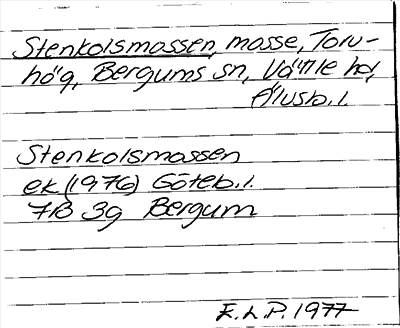 Stenkolsmossen, mosse, Toru-
hög, Bergums sn, Vättle hd,
Älvsb. l.
Stenkolsmossen
ek (1976) Göteb. l.
7B 3g Bergum
E.L.P. 1977